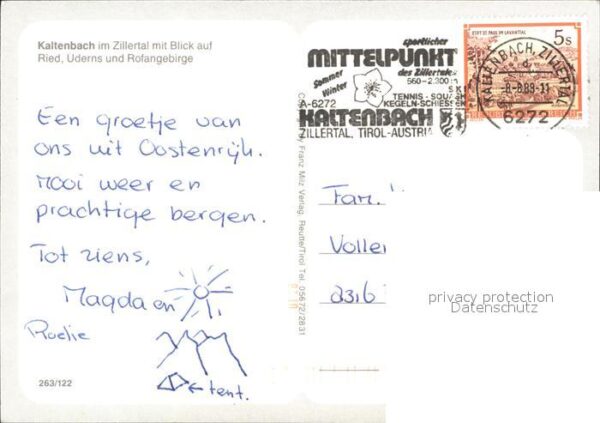 Kaltenbach im Zillertal mit Blick auf
Ried, Uderns und Rofangebirge
Een groetje van
ons uit Oostenrijk.
Mooi weer en
prachtige bergen.
Tot ziens,
Magda en
Roelie
← tent.
263/122
Franz Milz Verlag, Reutte/Tirol Tel. 05672/2831
sportlicher
MITTELPUNKT
des Zillertales
560-2.300
Sommer
Winter
TENNIS - SQUASH
KEGELN-SCHIESSEN
A-6272
KALTENBACH
ZILLERTAL, TIROL-AUSTRIA
STIFT ST. PAUL IM LAVANTTAL
5s
KALTENBACH, ZILLERTAL
6272
Fam.
Volle
privacy protection
Datenschutz